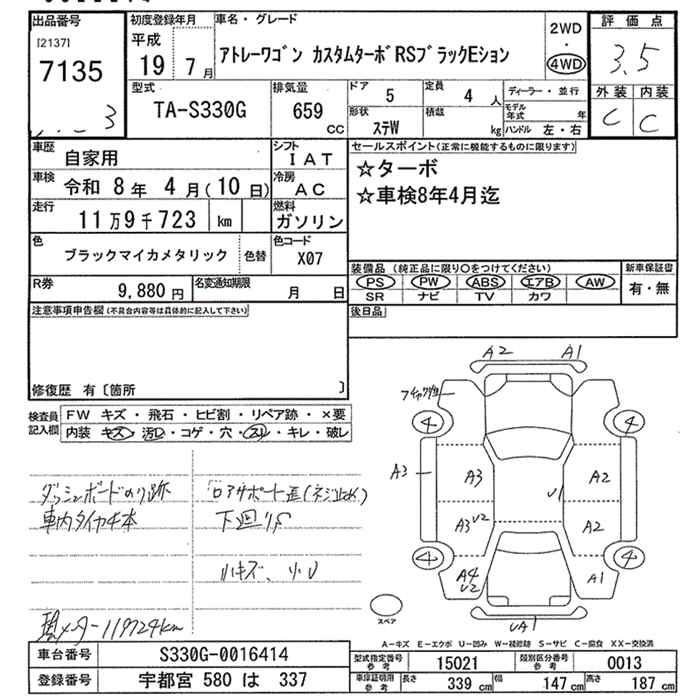 出品番号 初度登録年月 車名・グレード 2WD 評価点
[2137] 平成 アトレーワゴン カスタムターボRSブラックEション ・ 3.5
7135 19 7月 4WD
型式 排気量 ドア 5 定員 4 人 ディーラー・並行 外装 内装
TA-S330G 659 cc 形状 ステW 積載 kg モデル年式 年 C C
3 ハンドル 左・右
車歴 自家用 シフト IAT セールスポイント(正常に機能するものに限ります)
車検 令和 8年 4月(10日) 冷房 AC ☆ターボ
走行 11万9千723 km 燃料 ガソリン ☆車検8年4月迄
色 ブラックマイカメタリック 色替 色コード X07
装備品 (純正品に限り○をつけてください) 新車保証書
R券 9,880円 名変通知期限 月 日 PS PW ABS エアB AW 有・無
SR ナビ TV カワ
注意事項申告欄(不具合内容等は具体的に記入して下さい) 後日品
修復歴 有〔箇所 〕
検査員記入欄 FW キズ・飛石・ヒビ割・リペア跡・×要
内装 キズ・汚レ・コゲ・穴・スレ・キレ・破レ
A2 A1
4 4
A3 A3 A2
U1
A3 U2 A2
4 4
A4 U2 A1
UA1
ダッシュボードのり跡
車内タイヤ4本
下廻りS
小キズ、小U
現メーター119724km
スペア
A-キズ E-エクボ U-凹み W-補修跡 S-サビ C-腐食 XX-交換済
車台番号 S330G-0016414 型式指定番号 参考 15021 類別区分番号 参考 0013
登録番号 宇都宮 580 は 337 車庫証明用 参考 長さ 339 cm 幅 147 cm 高さ 187 cm